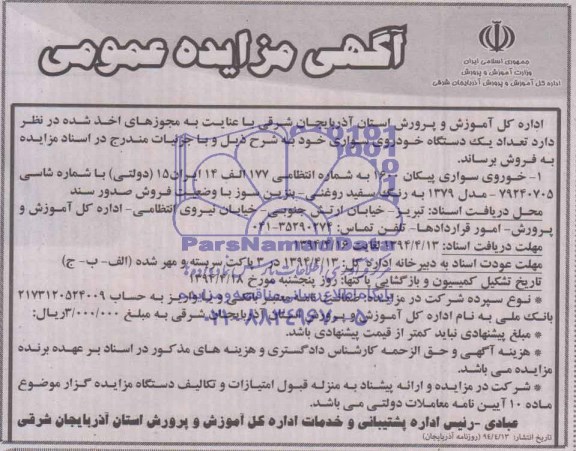 آگهی مزایده عمومی
جمهوری اسلامی ایران
وزارت آموزش و پرورش
اداره کل آموزش و پرورش آذربایجان شرقی
اداره کل آموزش و پرورش استان آذربایجان شرقی با عنایت به مجوزهای اخذ شده در نظر
دارد تعداد یک دستگاه خودروی سواری خود به شرح ذیل و با جزئیات مندرج در اسناد مزایده
به فروش برساند.
۱- خوروی سواری پیکان ۱۶۰۰ به شماره انتظامی ۱۷۷ الف ۱۴ ایران ۱۵ (دولتی) با شماره شاسی
۷۹۲۴۰۷۰۵ - مدل ۱۳۷۹ به رنگ سفید روغنی- بنزین سوز با وضعیت فروش صدور سند
محل دریافت اسناد: تبریز - خیابان ارتش جنوبی- خیابان نیروی انتظامی- اداره کل آموزش و
پرورش- امور قراردادها- تلفن تماس: ۳۵۲۹۰۲۷۴-۰۴۱
مهلت دریافت اسناد: ۱۳۹۴/۴/۱۳ لغایت ۱۳۹۴/۴/۱۶
مهلت عودت اسناد به دبیرخانه اداره کل: ۱۳۹۴/۴/۱۳ در ۳ پاکت سربسته و مهر شده (الف- ب- ج)
تاریخ تشکیل کمیسیون و بازگشایی پاکتها: روز پنجشنبه مورخ ۱۳۹۴/۴/۲۸
* نوع سپرده شرکت در مزایده: بانکی و یا واریز به حساب ۲۱۷۳۱۲۰۵۲۴۰۰۹
بانک ملی به نام اداره کل آموزش و پرورش استان آذربایجان شرقی به مبلغ ۳/۰۰۰/۰۰۰ریال:
* مبلغ پیشنهادی نباید کمتر از قیمت پیشنهادی باشد.
* هزینه آگهی و حق الزحمه کارشناس دادگستری و هزینه های مذکور در اسناد بر عهده برنده
مزایده می باشد.
* شرکت در مزایده و ارائه پیشنهاد به منزله قبول امتیازات و تکالیف دستگاه مزایده گزار موضوع
ماده ۱۰ آیین نامه معاملات دولتی می باشد.
عبادی -رئیس اداره پشتیبانی و خدمات اداره کل آموزش و پرورش استان آذربایجان شرقی
تاریخ انتشار: ۹۴/۴/۱۳ (روزنامه آذربایجان)
ParsNamadData
پایگاه اطلاع رسانی مناقصه و مزایده
۰۲۱-۸۸۳۴۹۶۷۰-۵